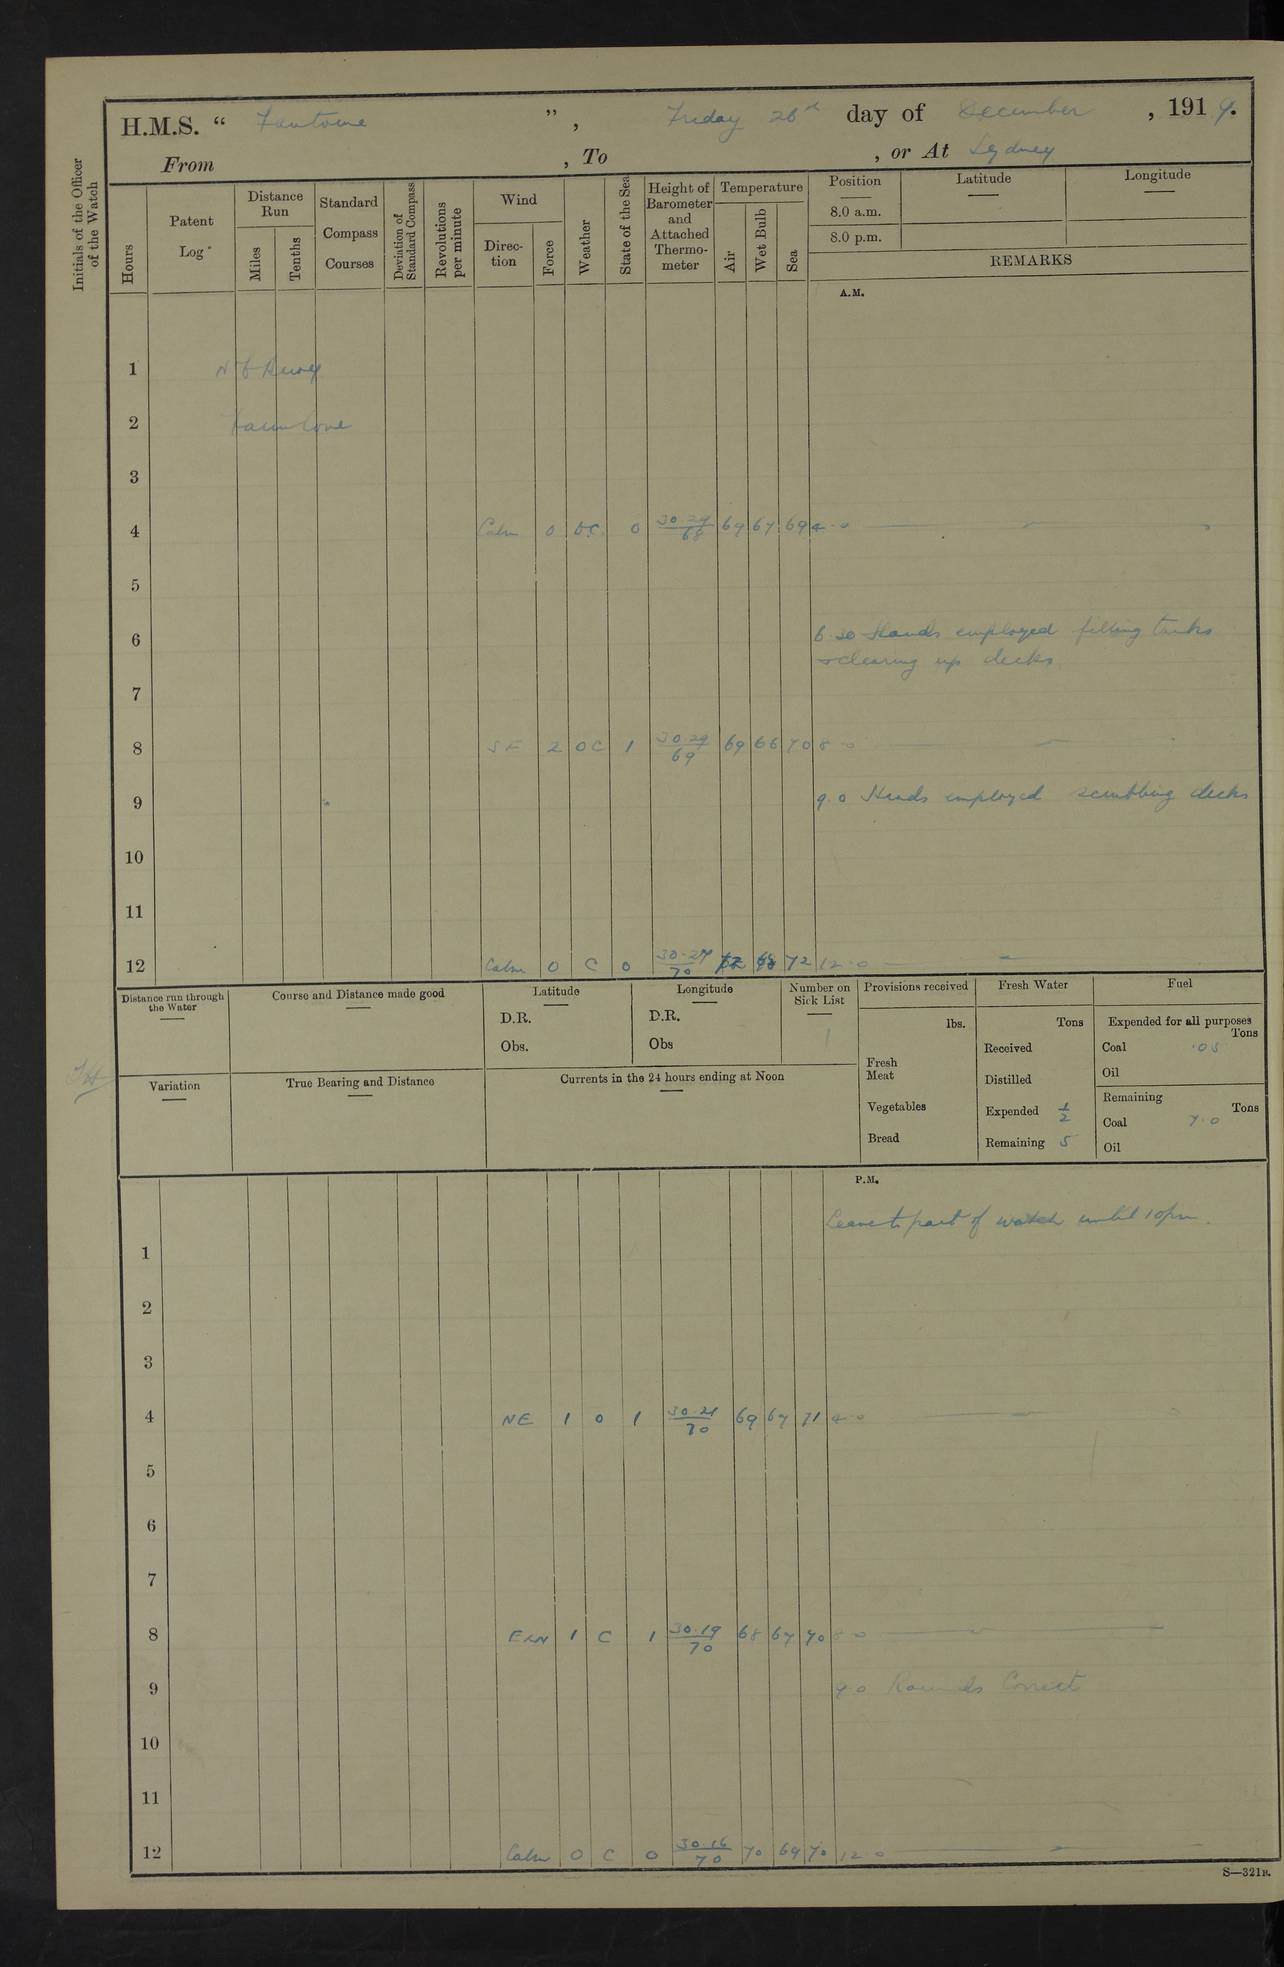 H.M.S. “ Fantome ”, Friday 26th day of December, 1919.
From , To , or At Sydney
Initials of the Officer of the Watch
Hours
Patent Log
Distance Run
Miles
Tenths
Standard Compass Courses
Deviation of Standard Compass
Revolutions per minute
Wind
Direction
Force
Weather
State of the Sea
Height of Barometer and Attached Thermometer
Temperature
Air
Wet Bulb
Sea
Position Latitude Longitude
8.0 a.m.
8.0 p.m.
REMARKS
A.M.
1
2 Farm Cove
3
4 Calm 0 bc. 0 30.29/68 69 67 69 4.0
5
6 6.30 Hands employed filling tanks
& clearing up decks
7
8 SE 2 OC 1 30.29/69 69 66 70 8.0
9 9.0 Hands employed scrubbing decks
10
11
12 Calm 0 C 0 30.27/70 72 12.0
Distance run through the Water
Course and Distance made good
Latitude
D.R.
Obs.
Longitude
D.R.
Obs
Number on Sick List
1
Provisions received
lbs.
Fresh Meat
Vegetables
Bread
Fresh Water
Tons
Received
Distilled
Expended ½
Remaining 5
Fuel
Expended for all purposes
Tons
Coal .05
Oil
Remaining
Tons
Coal 7.0
Oil
Variation
True Bearing and Distance
Currents in the 24 hours ending at Noon
P.M.
Leave to part of watch until 10pm.
1
2
3
4 NE 1 0 1 30.21/70 69 67 71 4.0
5
6
7
8 1 C 1 30.19/70 68 67 70 8.0
9 9.0 Rounds Correct
10
11
12 Calm 0 C 0 30.16/70 70 69 70 12.0
S—321B.